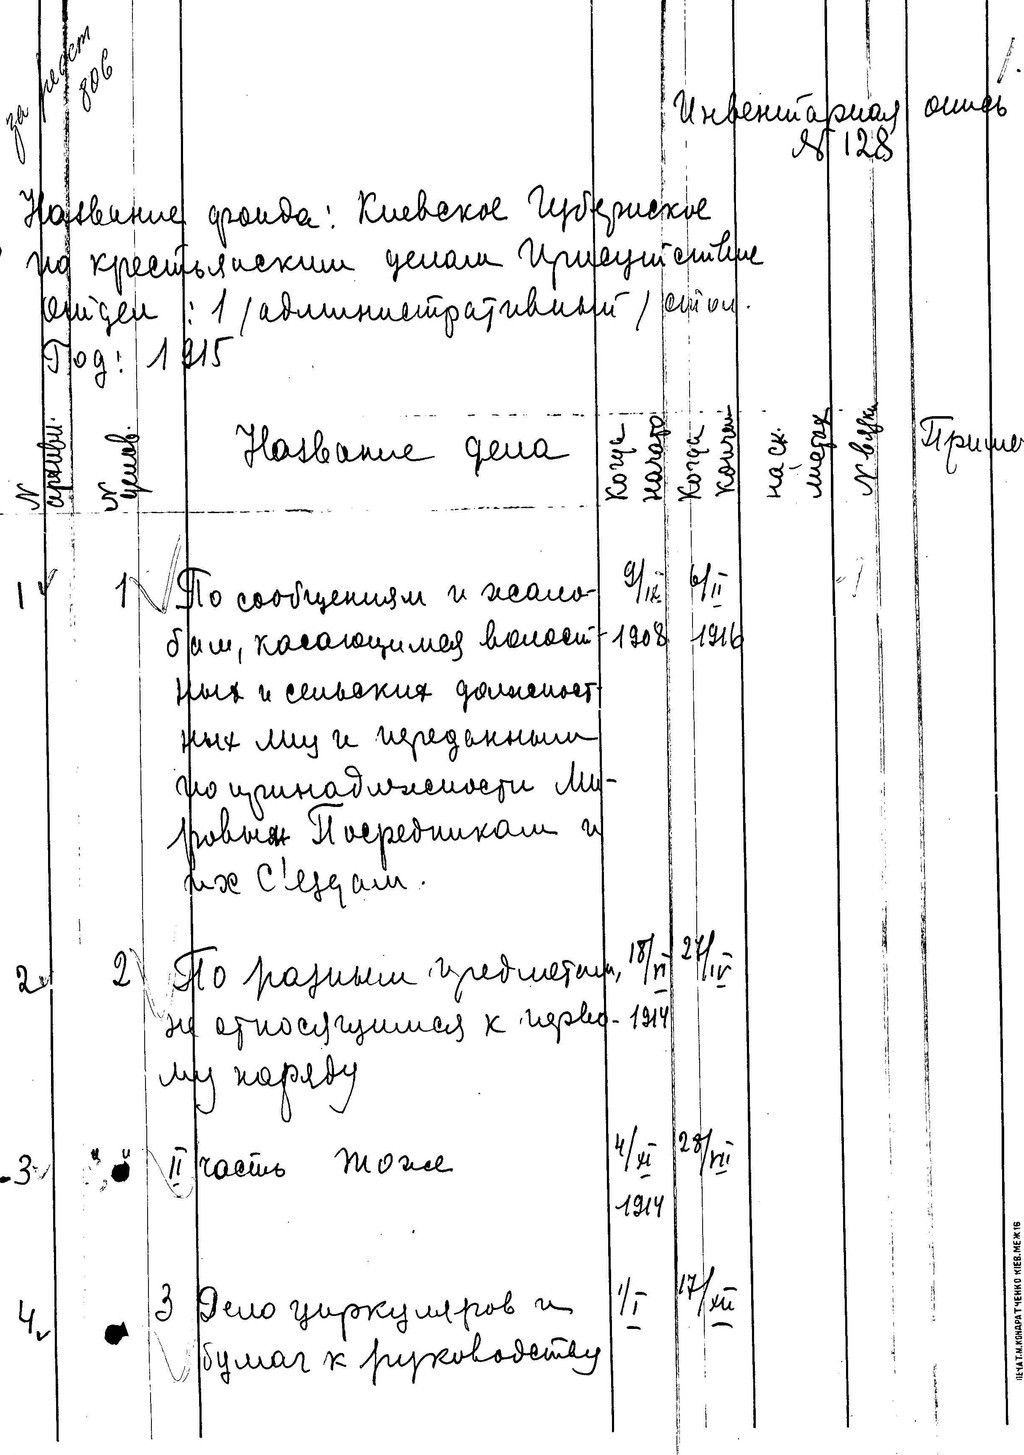 за реест
806
1.
Инвентарная опись
№ 128
Название фонда: Киевское Губернское
по крестьянским делам Присутствие
отдел : 1 /административный/ стол.
Год: 1915
N архивн.
N делов.
Название дела
Когда начато
Когда кончен
на ск. листах
N вязки
Приме
1 1 По сообщениям и жало- 9/IX 6/II
бам, касающимся волост- 1908 1916
ных и сельских должност
ных лиц и переданным
по принадлежности Ми-
ровым Посредникам и
их С'ездам.
2 2 По разным предметам, 18/VI 27/IV
не относящимся к перво- 1914
му наряду
3 " " II часть тоже 4/XI 28/VII
1914
4 3 Дело циркуляров и 1/I 17/XII
бумаг к руководству
ПЕЧАТ.М.КОНДРАТЧЕНКО КІЕВ.МЕЖ16